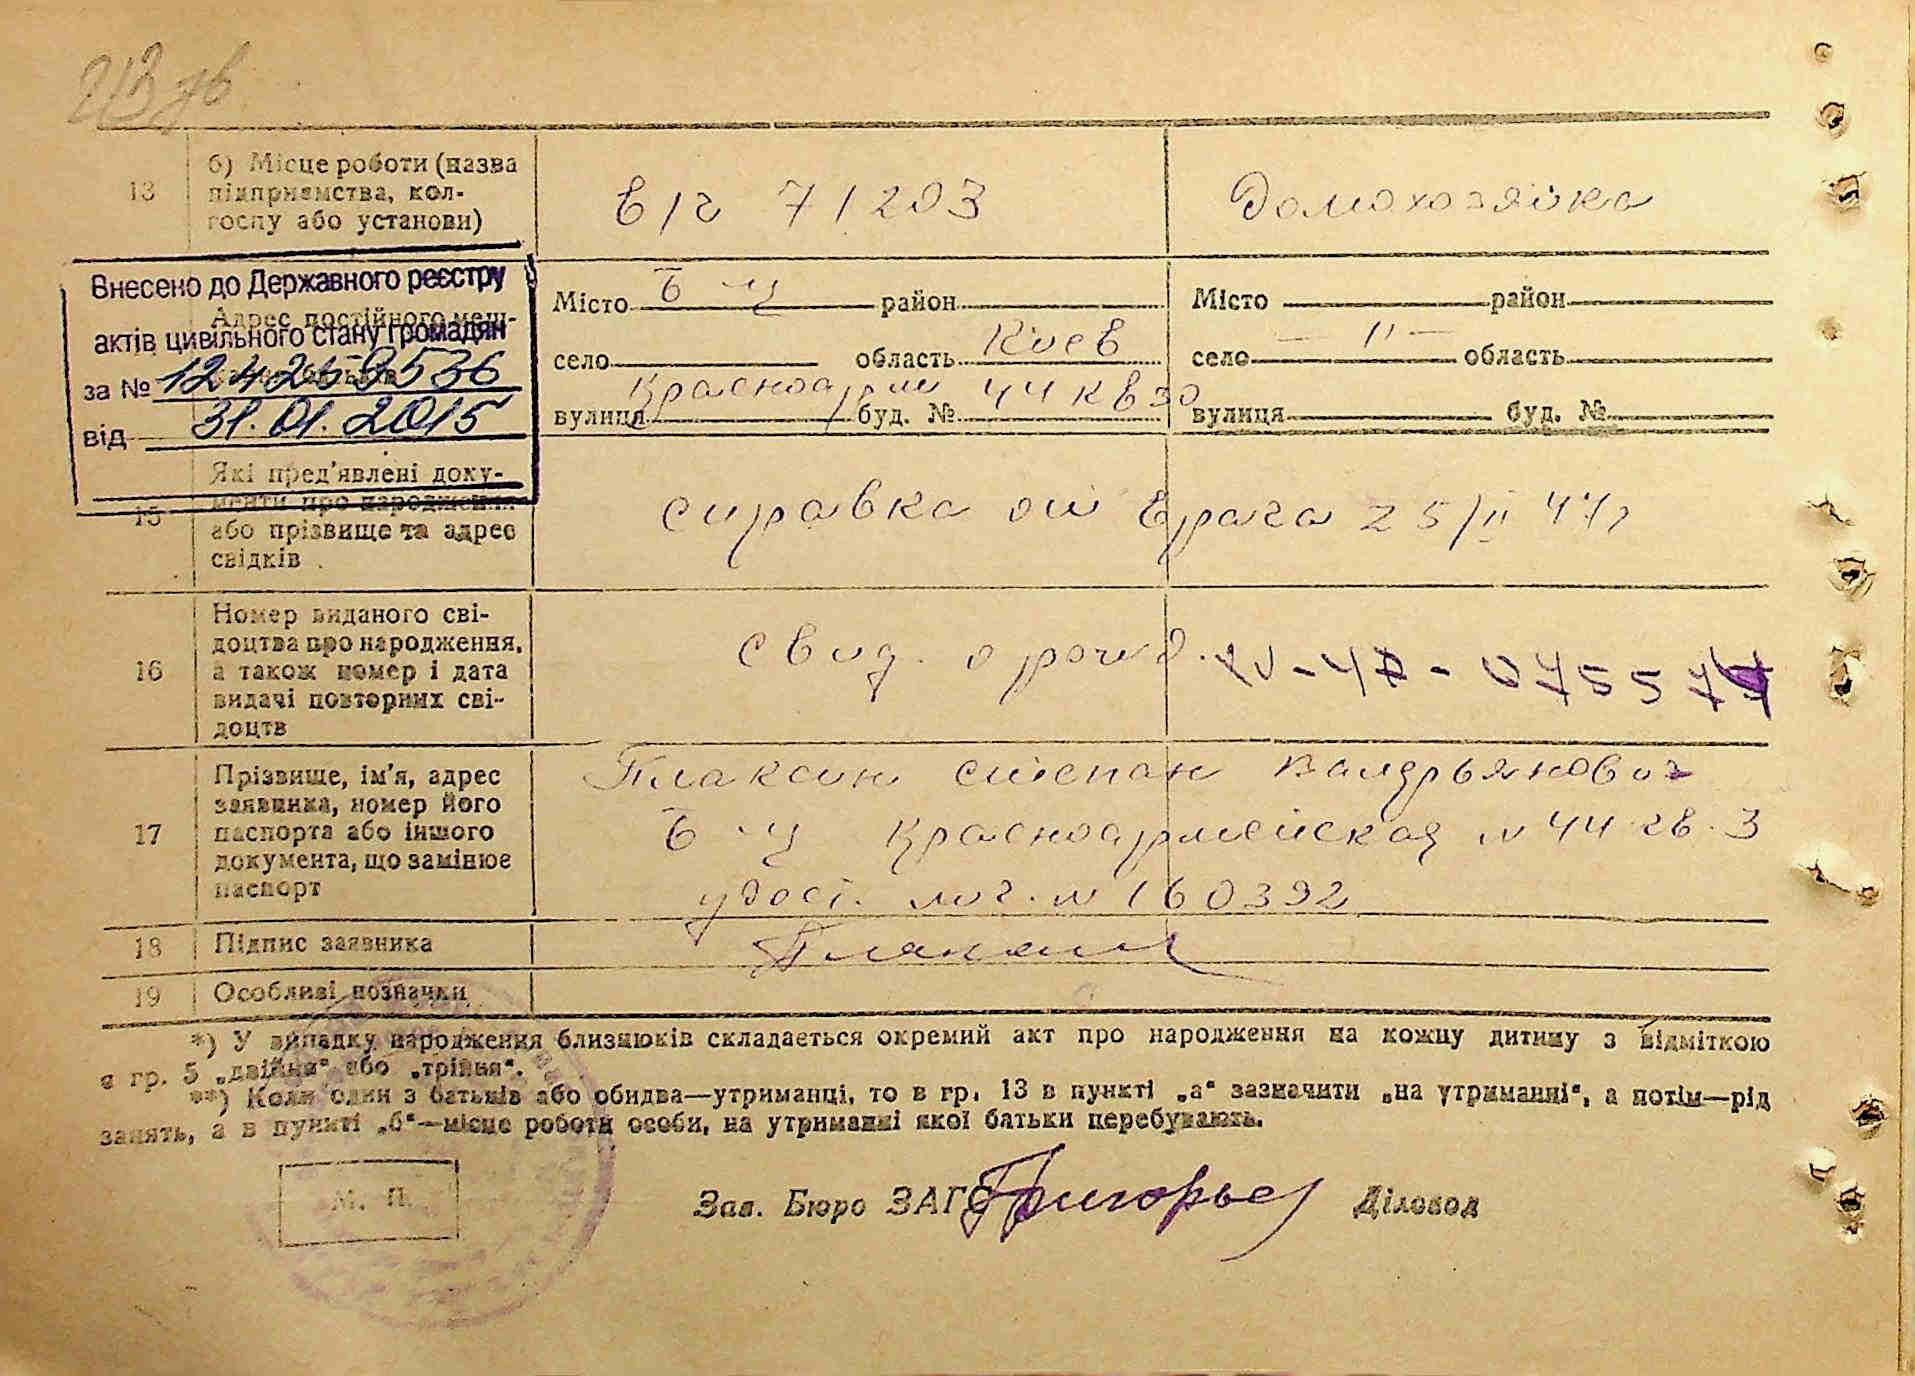 13
б) Місце роботи (назва
підприємства, кол-
госпу або установи)
в/г 71203
Домохозяйка
Внесено до Державного реєстру
актів цивільного стану громадян
за №
від 31.01.2015
Адрес постійного меш-
Місто Б-Ц район
село область Киев
вулиця Красноарм буд. № 44 кв 30
Місто район
село - 〃 - область
вулиця буд. №
15
Які пред'явлені доку-
менти про народження
або прізвище та адрес
свідків
справка от врача 25/II 47г
16
Номер виданого сві-
доцтва про народження,
а також номер і дата
видачі повторних сві-
доцтв
свид. о рожд.
17
Прізвище, ім'я, адрес
заявника, номер його
паспорта або іншого
документа, що замінює
паспорт
Плаксин Степан Валерьянович
Б-Ц Красноармейская № 44 кв. 3
удост. лич. № 160392
18
Підпис заявника
Плаксин
19
Особливі позначки
*) У випадку народження близнюків складається окремий акт про народження на кожну дитину з відміткою
в гр. 5 „двійня“ або „трійня“.
**) Коли один з батьків або обидва—утриманці, то в гр. 13 в пункті „а“ зазначити „на утриманні“, а потім—рід
занять, а в пункті „б“—місце роботи особи, на утриманні якої батьки перебувають.
М. П.
Зав. Бюро ЗАГС Григорьев
Діловод